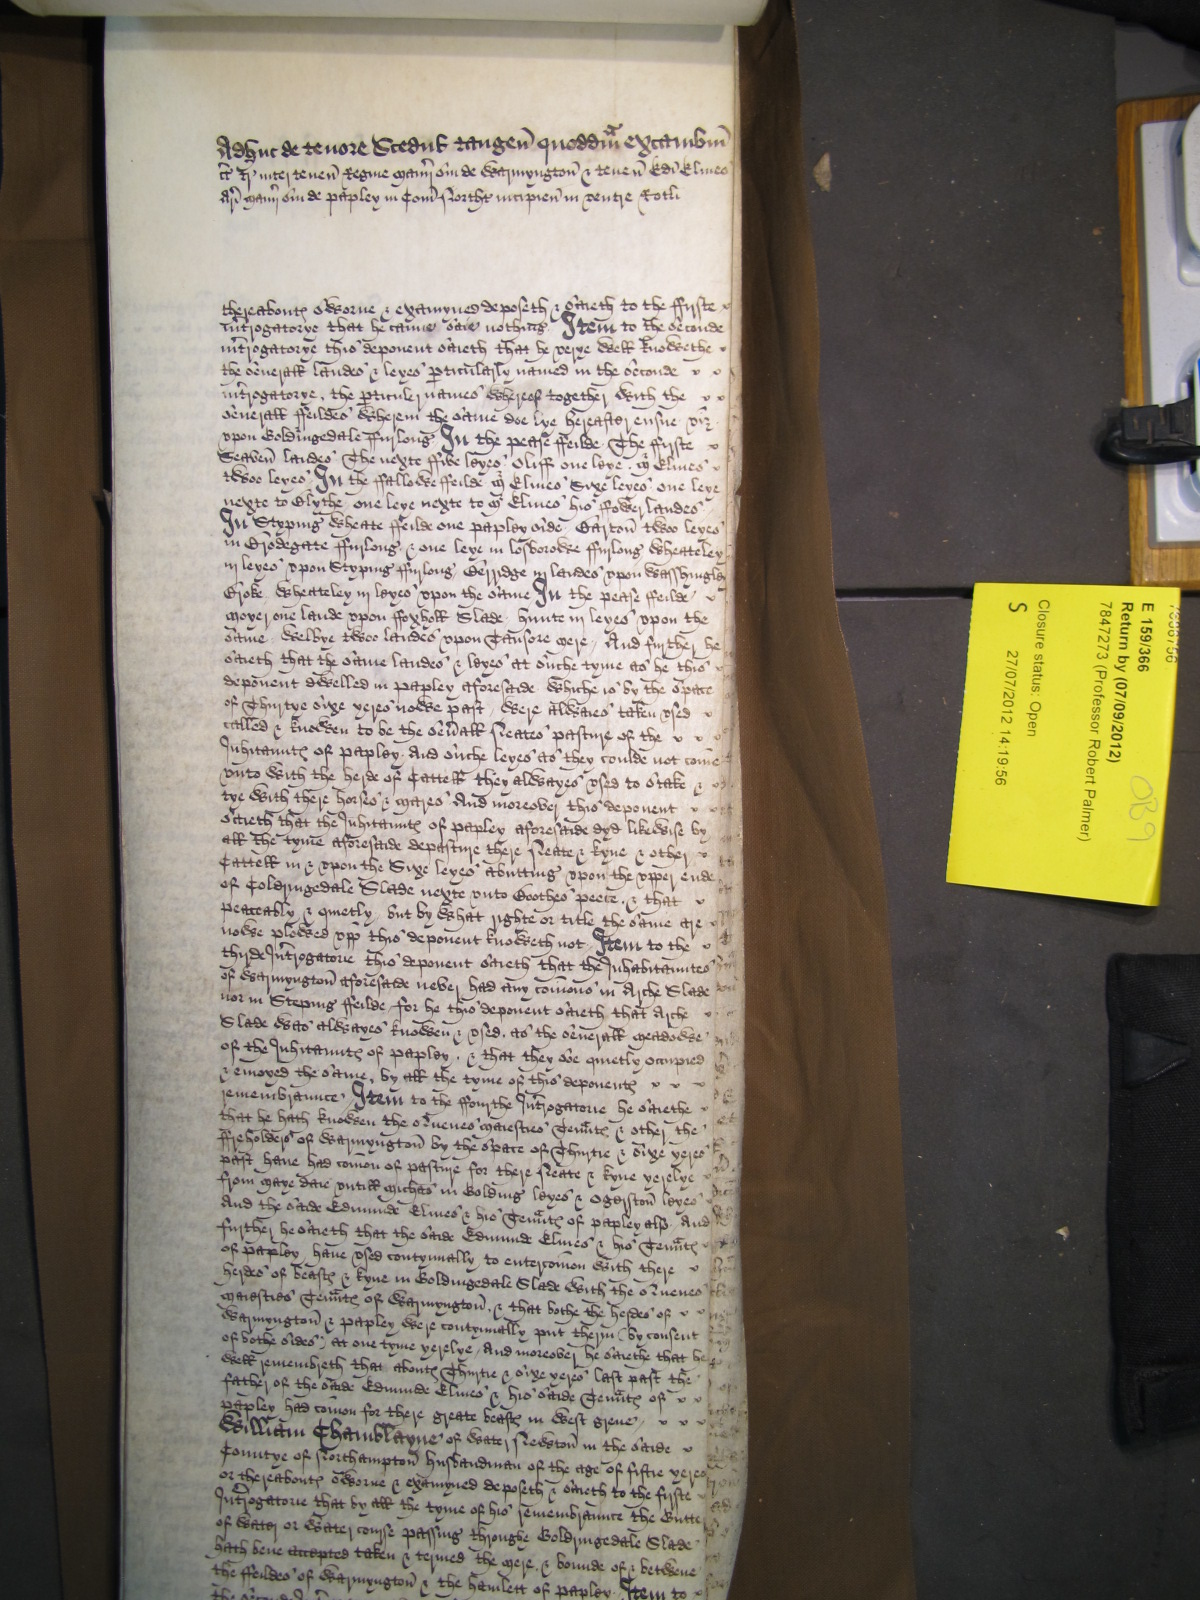 Adhuc de tenore Scedul tangen quoddm excambiu
inter tenen Regine Manii sui de Warmyngton & tenen Edi Elmes
Ari Manii sui de Papley in Com Northt incipien in ventre Rotli
thereaboute sworne & examyned deposeth & saieth to the firste
Introgatorye that he canne saie nothing. Item to the seconde
introgatorye this deponent saieth that he verye well knowethe
the severall landes & leyes pticularly named in the seconde
introgatorye, the pticuler names whereof together with the
severall feildes wherein the same doe lye hereafter ensue viz
vpon Goldingedale furlong In the pease feilde The firste
Seaven landes The nexte five leyes Oliff one leye. Mr Elmes
twoo leyes In the fallowe feilde Mr Elmes Sixe leyes one leye
nexte to Blythe one leye nexte to Mr Elmes his fower landes
In Styping wheate feilde one papley side Barton twoo leyes
in Brodegate furlong & one leye in losborowe furlong wheateley
iij leyes vpon Styping furlong Berridge iij landes vpon
Broke wheateley iij leyes vpon the same In the pease feilde
one lande vpon foxholl Slade hunte iij leyes vpon the
same Welbye twoo landes vpon Tansore mere And further he
saieth that the same landes & leyes at suche tyme as he this
deponent dwelled in papley aforesaide whiche is by the space
of Thirtye sixe yeres nowe past were allwaies taken vsed
called & knowen to be the severall Neates pasture of the
Inhitaunts of papley And suche leyes as they coulde not come
vnto with the herde of Cattell they allwayes vsed to stake &
tye with there horses & mares And moreover this deponent
saieth that the Inhitaunts of papley aforesaide dyd likewise by
all the tyme aforesaide depasture there Neate & kyne & other
Cattell in & vpon the Sixe leyes abutting vpon the vpper ende
of Goldringedale Slade nexte vnto Boothes peece & that
peaceably & quietly but by what righte or title the same are
nowe plowed vpp this deponent knoweth not Item to the
thirde Introgatorie this deponent saieth that the Inhabitauntes
of Warmyngton aforesaide never had any comons in Arche Slade
nor in Steping feilde for he this deponent saieth that Arche
Slade was allwayes knowen & vsed, as the severall meadowe
of the Inhitaunts of papley. & that they soe quietly occupied
& enioyed the same, by all the tyme of this deponents
remembraunce. Item to the fourthe Introgatorie he saiethe
that he hath knowen the Quenes maiesties Tennts & other the
freholders of Warmyngton by the space of Thirtie & sixe yeres
past have had comon of pasture for there Neate & kyne yerelye
from maye daie vntill Michas in Golding leyes & Ogerston leyes
And the saide Edmunde Elmes & his Tennts of papley also And
further he saieth that the saide Edmunde Elmes & his Tennts
of papley have vsed contynually to entercomon with there
herdes of beasts & kyne in Goldingedale Slade with the Quenes
maiesties Tennts of Warmyngton, & that bothe the herdes of
Warmyngton & papley were contynually put therin by consent
of bothe sides, at one tyme yerelye And moreover he saiethe that he
well remembreth that aboute Thirtie & sixe yeres last past the
father of the saide Edmunde Elmes & his saide Tennts of
papley had comon for there greate beasts in West grene
William Chamblayne of Water Newton in the saide
Countye of Northampton husbandman of the age of fiftie yeres
or thereabouts sworne & examyned deposeth & saieth to the firste
Introgatorie that by all the tyme of his remembraunce the Gutter
of water or water course passing throughe Goldringedale Slade
hath bene accepted taken & termed the mere, & bounde of & betwene
the feildes of Warmyngton & the hamlett of papley. Item to
E 159/366
Return by (07/09/2012)
7847273 (Professor Robert Palmer)
Closure status: Open
S 27/07/2012 14:19:56
OB9